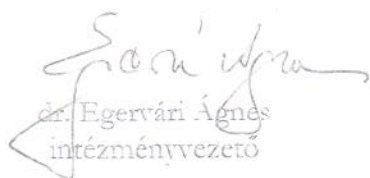 dr. Egervári Ágnes
intézményvezető